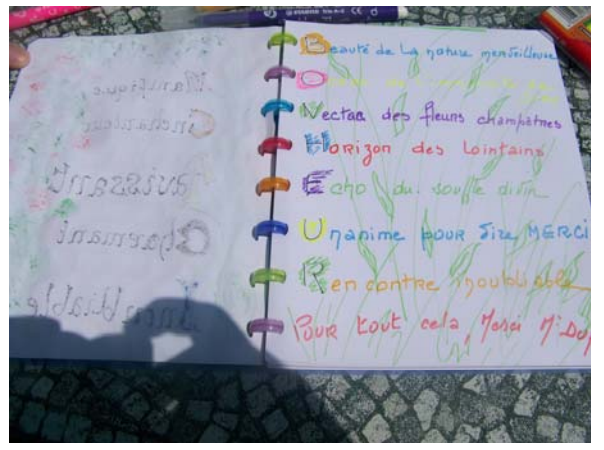 Manifique
Enchanteur
Ravissant
Charmant
Inoubliable
Beauté de La nature merveilleuse
O
Nectar des fleurs champêtres
Horizon des Lointains
Echo du souffle divin
Unanime pour dire MERCI
Rencontre inoubliable
Pour tout cela, Merci